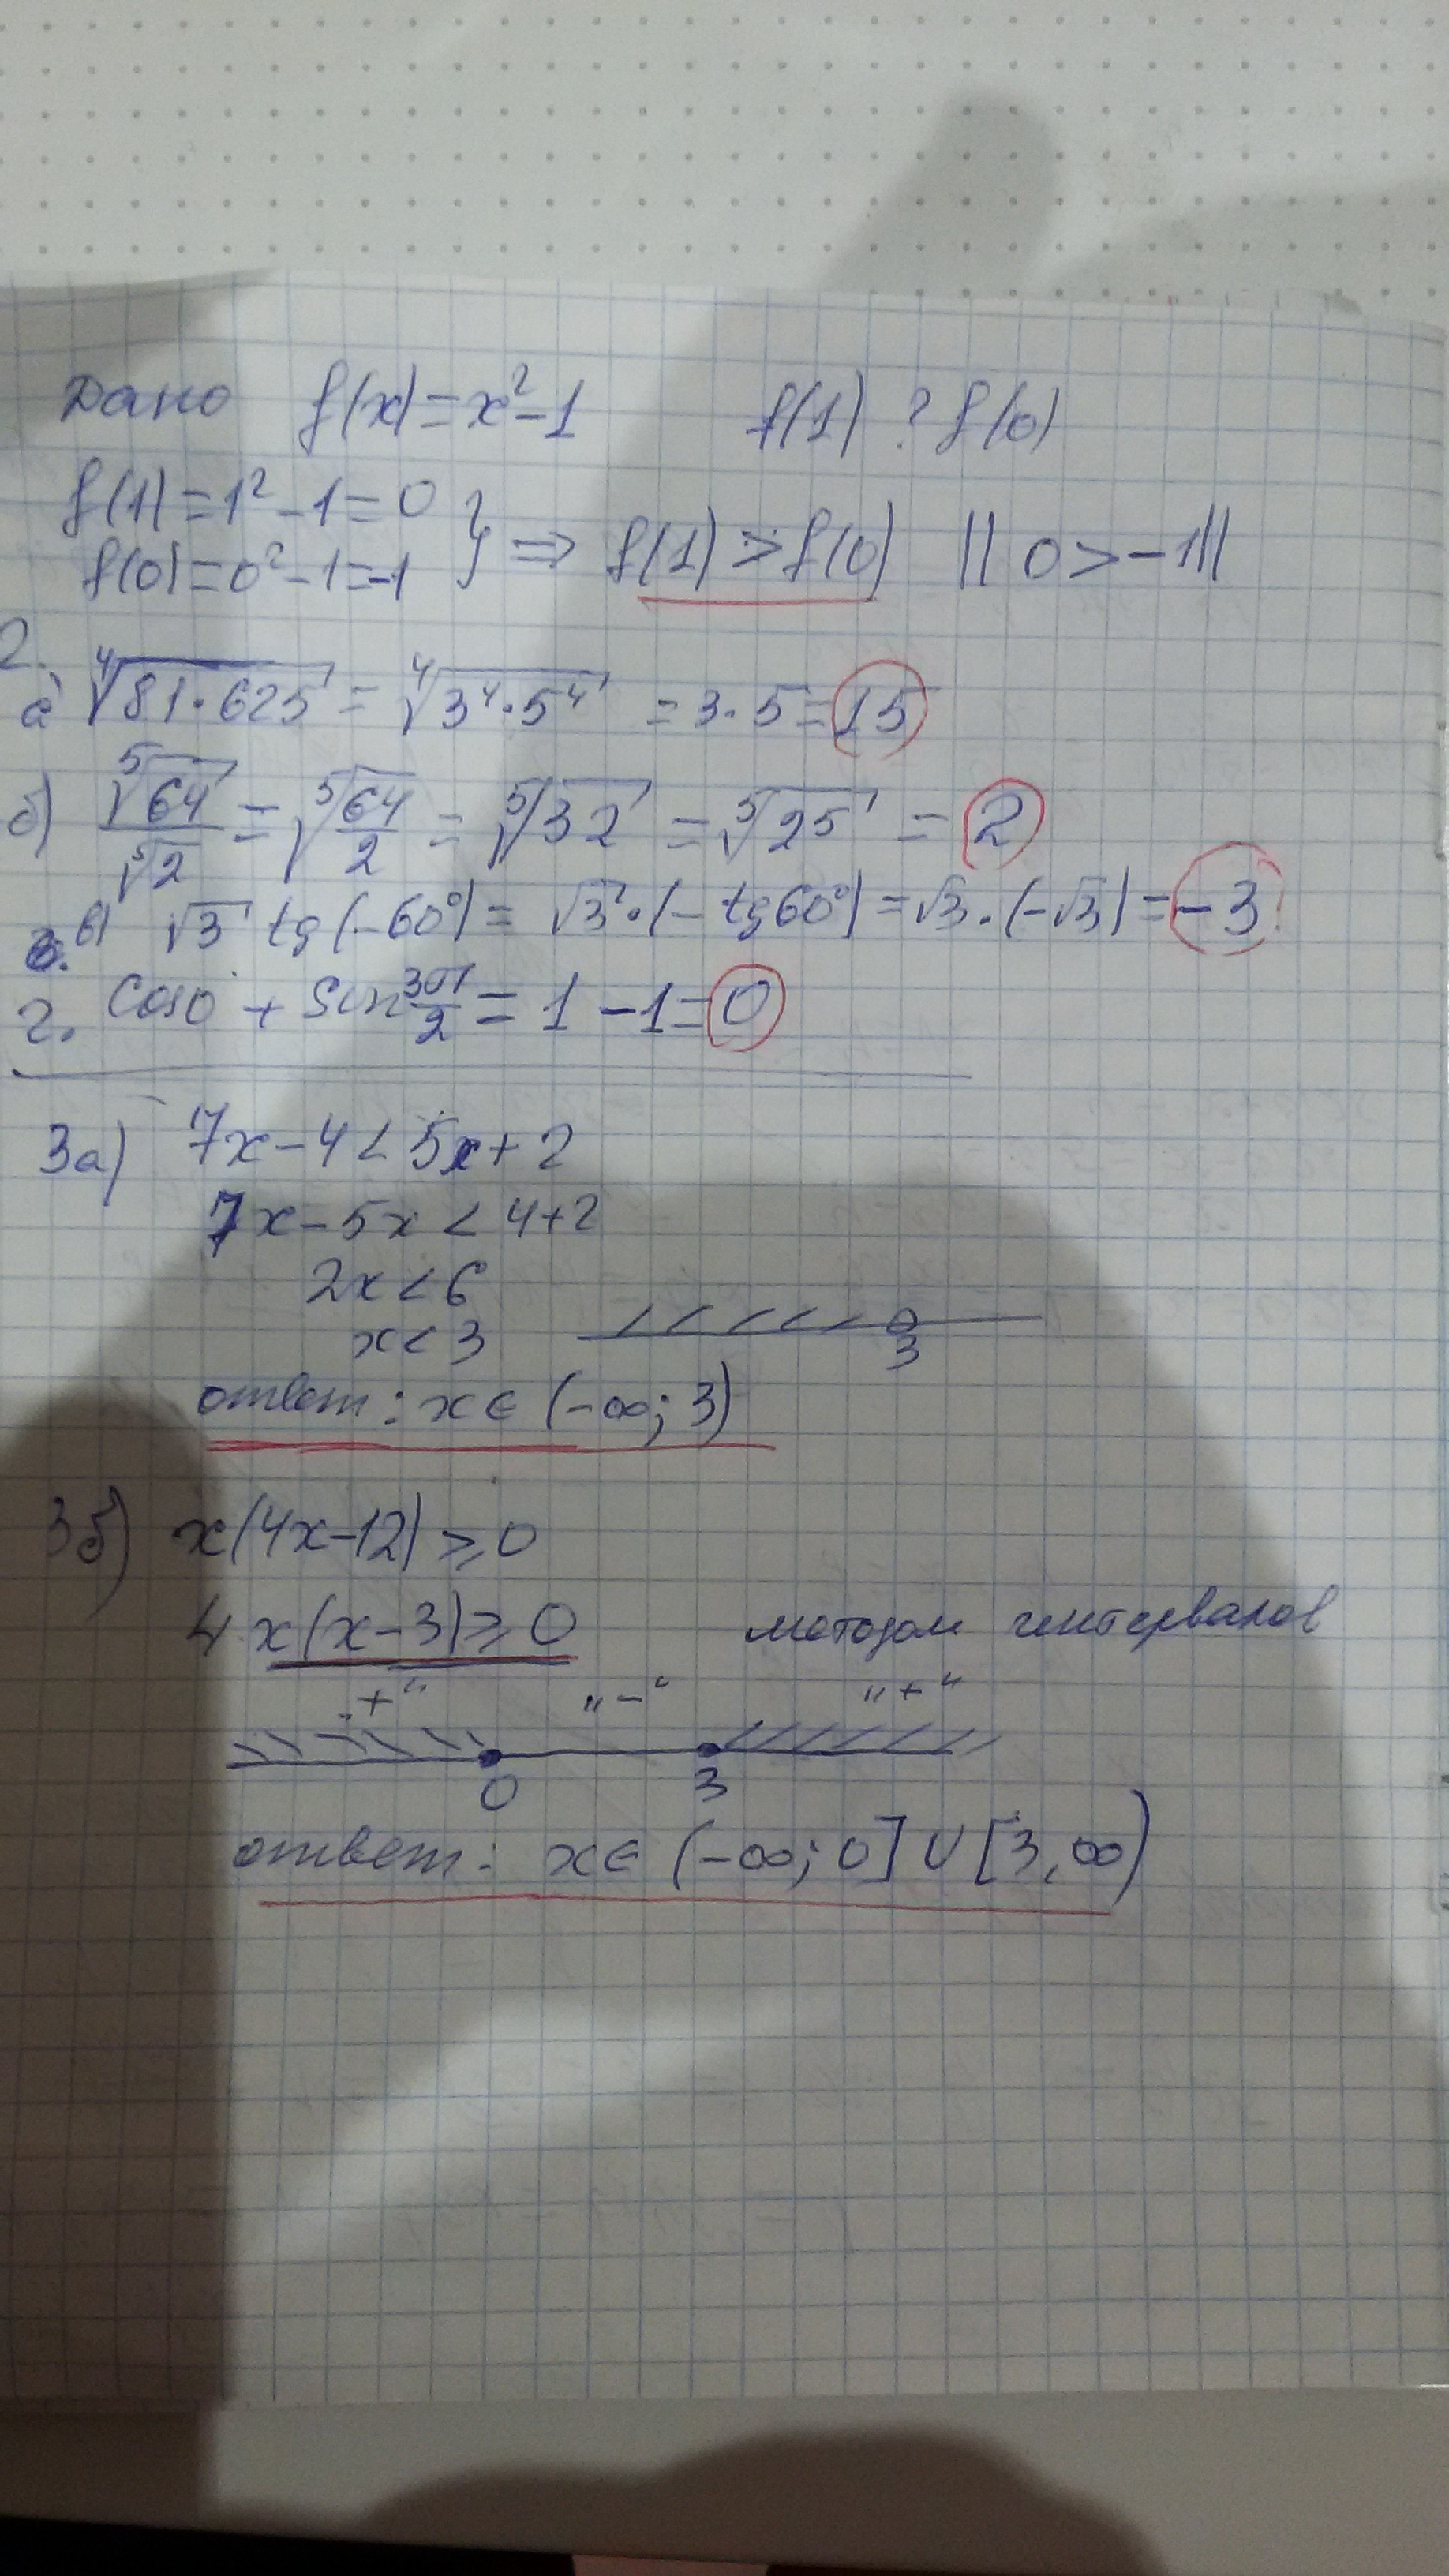 Дано f(x)=x²-1 f(1) ? f(0)
f(1)=1²-1=0
f(0)=0²-1=-1 } ⇒ f(1)>f(0) || 0>-1 ||
2.
а) ⁴√81·625 = ⁴√3⁴·5⁴ = 3·5=15
б) ⁵√64/⁵√2 = ⁵√64/2 = ⁵√32 = ⁵√2⁵ = 2
в) √3 tg(-60°) = √3·(-tg60°) = √3·(-√3) = -3
г. cos0 + sin 3π/2 = 1 -1=0
3а) 7x-4<5x+2
7x-5x<4+2
2x<6
x<3
3
ответ: x∈(-∞; 3)
3б) x(4x-12)⩾0
4x(x-3)⩾0 методом интервалов
„+“ „-“ „+“
0 3
ответ: x∈(-∞; 0]∪[3,∞)